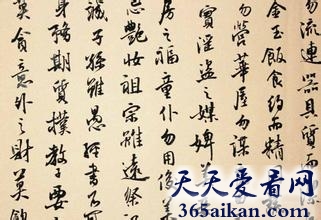 勿流連器具質而潔
金玉飯食約而精
勿營華屋勿謀
實淫盜之媒婢美
房之福童仆勿用俊美
忌艷妝祖宗雖遠祭
誠子孫雖愚經書不可
身務期質樸教子要
莫貪意外之財莫飲
天天爱看网
365aikan.com